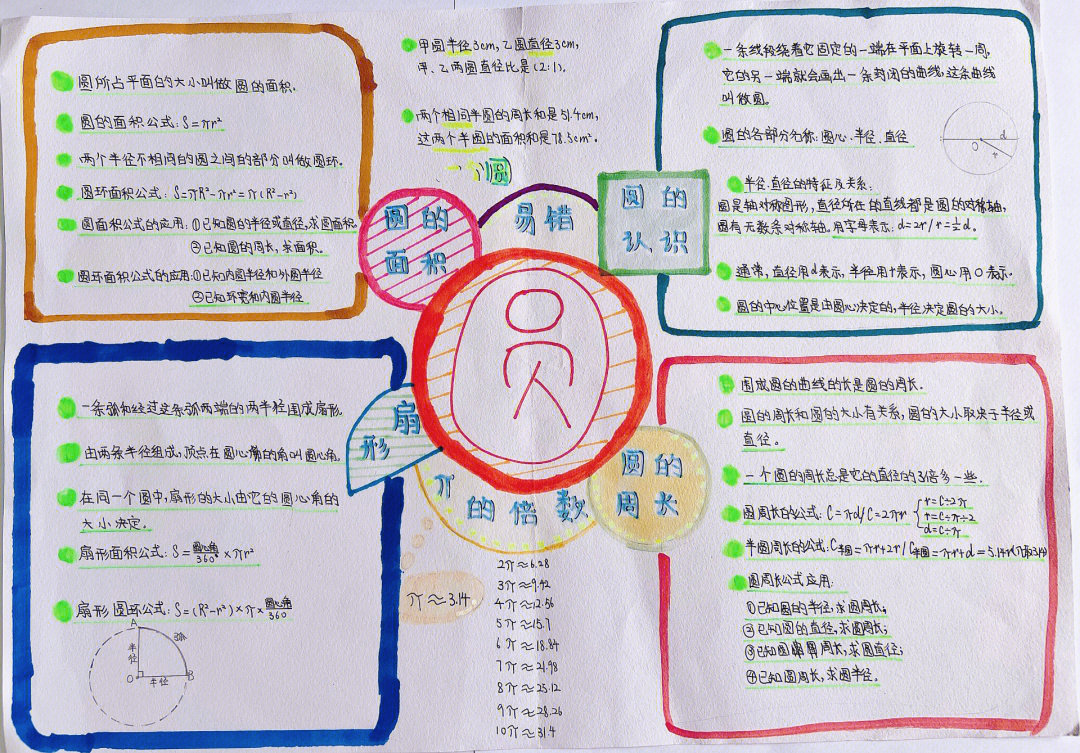 圆所占平面的大小叫做圆的面积.
圆的面积公式:S=πr²
两个半径不相同的圆之间的部分叫做圆环.
圆环面积公式:S=πR²-πr²=π(R²-r²)
圆面积公式的应用:①已知圆的半径或直径,求圆面积.
②已知圆的周长,求面积.
圆环面积公式的应用:①已知内圆半径和外圆半径
②已知环宽和内圆半径
甲圆半径3cm,乙圆直径3cm,
甲、乙两圆直径比是(2:1).
两个相同半圆的周长和是51.4cm,
这两个半圆的面积和是78.5cm².
一个圆
圆的
面积
易错
圆的
认识
一条线段绕着它固定的一端在平面上旋转一周,
它的另一端就会画出一条封闭的曲线,这条曲线
叫做圆。
圆的各部分名称:圆心、半径、直径
d
O
r
半径、直径的特征及关系:
圆是轴对称图形,直径所在的直线都是圆的对称轴,
圆有无数条对称轴.用字母表示:d=2r/r=½d.
通常,直径用d表示,半径用r表示,圆心用O表示.
圆的中心位置是由圆心决定的,半径决定圆的大小。
圆
扇
形
一条弧和经过这条弧两端的两半径围成扇形.
由两条半径组成,顶点在圆心的角叫圆心角.
在同一个圆中,扇形的大小由它的圆心角的
大小决定。
扇形面积公式:S=圆心角/360°×πr²
扇形圆环公式:S=(R²-r²)×π×圆心角/360
A
半径
O
半径
B
π
的倍数
π≈3.14
2π≈6.28
3π≈9.42
4π≈12.56
5π≈15.7
6π≈18.84
7π≈21.98
8π≈25.12
9π≈28.26
10π≈31.4
圆的
周长
围成圆的曲线的长是圆的周长.
圆的周长和圆的大小有关系,圆的大小取决于半径或
直径。
一个圆的周长总是它的直径的3倍多一些.
圆周长的公式:C=πd/C=2πr
r=C÷2π
r=C÷π÷2
d=C÷π
半圆周长的公式:C半圆=πr+2r/C半圆=πr+d=5.14r
圆周长公式应用:
①已知圆的半径,求圆周长;
②已知圆的直径,求圆周长;
③已知圆周长,求圆直径;
④已知圆周长,求圆半径。